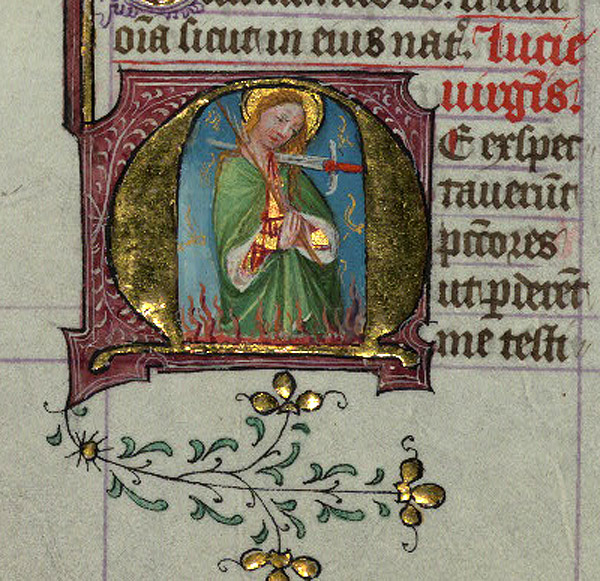 oīa sicut in eius nat̄. Lucie
uirgīs.
Me exspec
tauerūt
pctōres
ut ꝑderēt
me testi